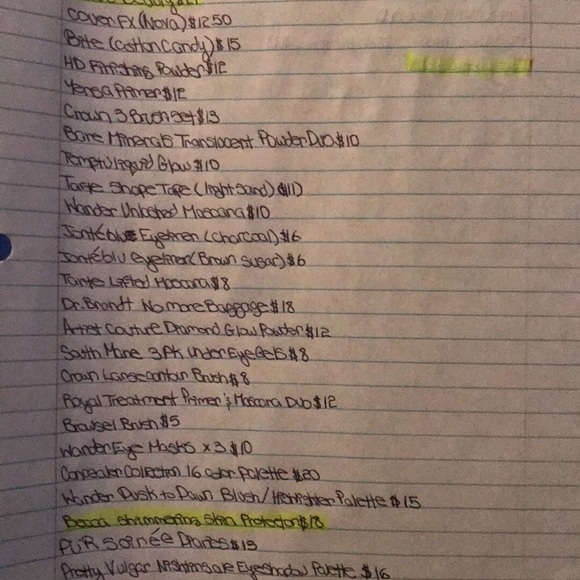 Cover FX (Nova) $12.50
Bite (Cotton Candy) $15
HD Finishing Powder $12
Yensa Primer $12
Crown 3 Brush set $13
Bare Minerals Translucent Powder Duo $10
Temptu liquid Glow $10
Tarte Shape Tape (light Sand)
Wander Unlashed Mascara $10
Jontéblu Eyeliner (Charcoal) $6
Jontéblu eyeliner (Brown Sugar) $6
Tarte Lifted Mascara $8
Dr. Brandt No more Baggage $18
Artist Couture Diamond Glow Powder $12
South Mane 3Pk Under Eye Gels $8
Crown Large contour Brush $8
Royal Treatment Primer & Mascara Duo $12
Brush $5
Wander Eye Masks x3 $10
Concealer Collection 16 color Palette $20
Wander Dusk to Dawn Blush/Highlighter Palette $15
Becca Shimmering Skin Protector $18
PÜR Soirée Diaries $13
Pretty Vulgar Nightingale Eyeshadow Palette $16